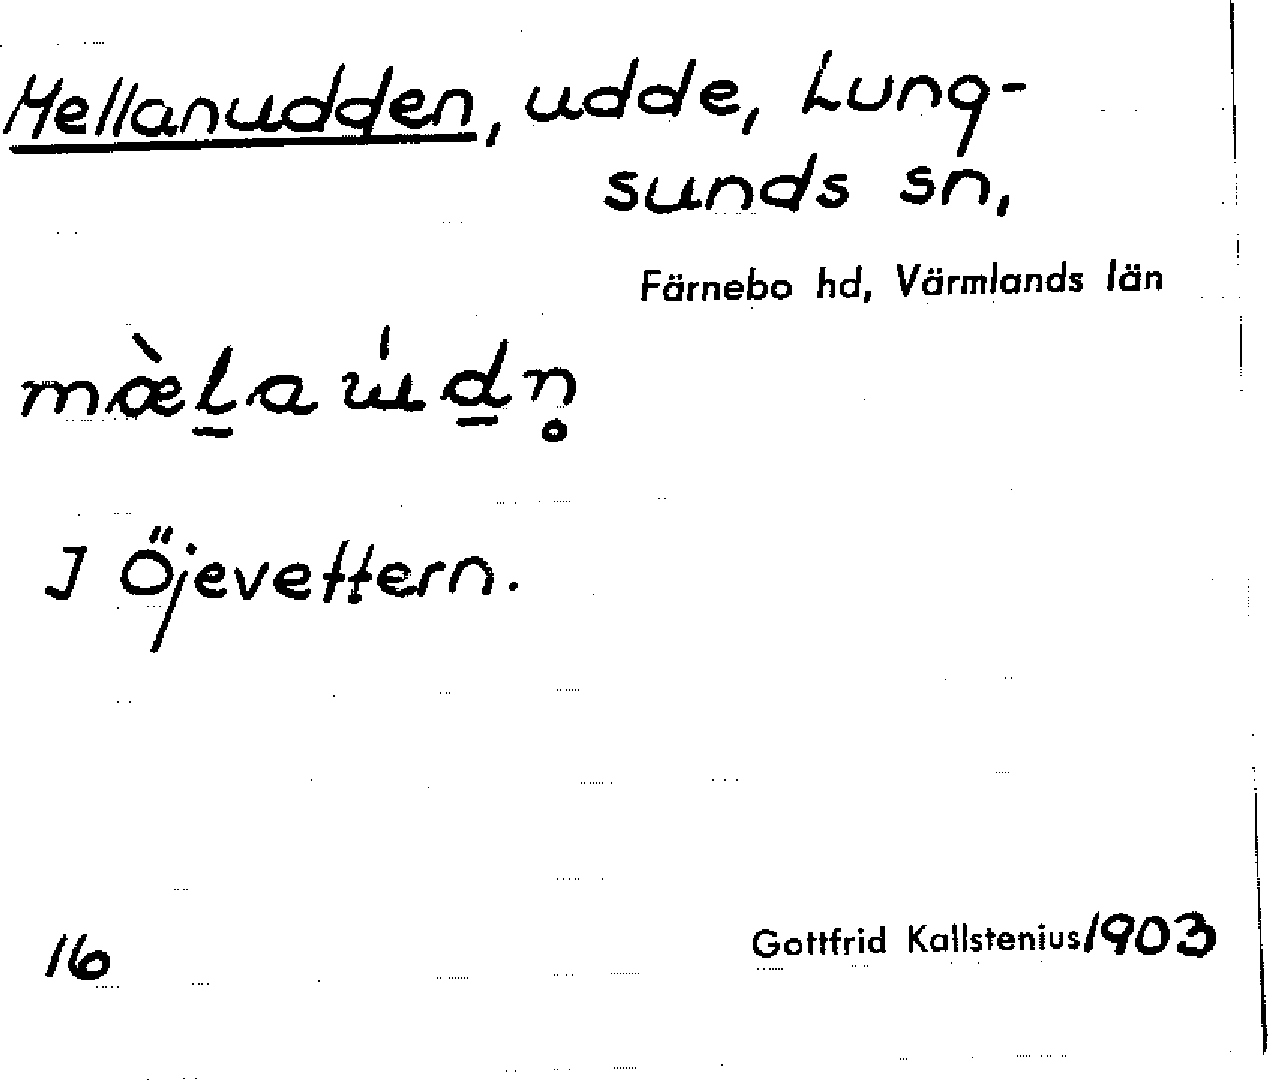 Mellanudden, udde, Lung-
sunds sn,
Färnebo hd, Värmlands län
mæ̀l̠a u̍d̠n̥
I Öjevettern.
16
Gottfrid Kallstenius 1903